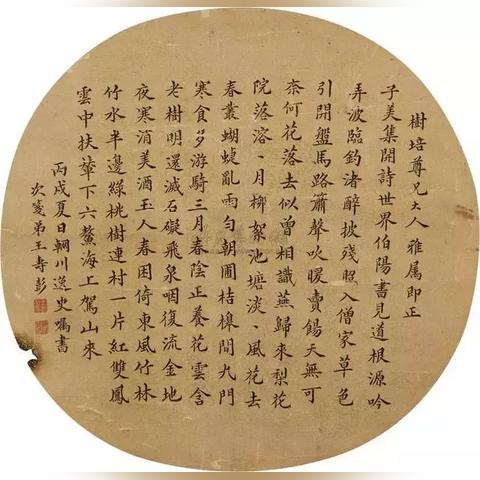 樹培尊兄大人雅屬即正
子美集開詩世界伯陽書見道根源吟
弄波臨釣渚醉披殘照入僧家草色
引開盤馬路簫聲吹暖賣餳天無可
柰何花落去似曾相識燕歸來梨花
院落溶〻月柳絮池塘淡〻風花去
春叢蝴蜨亂雨勻朝圃桔槔閒九門
寒食多游騎三月春陰正養花雲含
老樹明還滅石礙飛泉咽復流金地
夜寒消美酒玉人春困倚東風竹林
竹水半邊綠桃樹連村一片紅雙鳳
雲中扶輦下六鰲海上駕山來
丙戌夏日輞川逸史囑書
次箋弟王壽彭